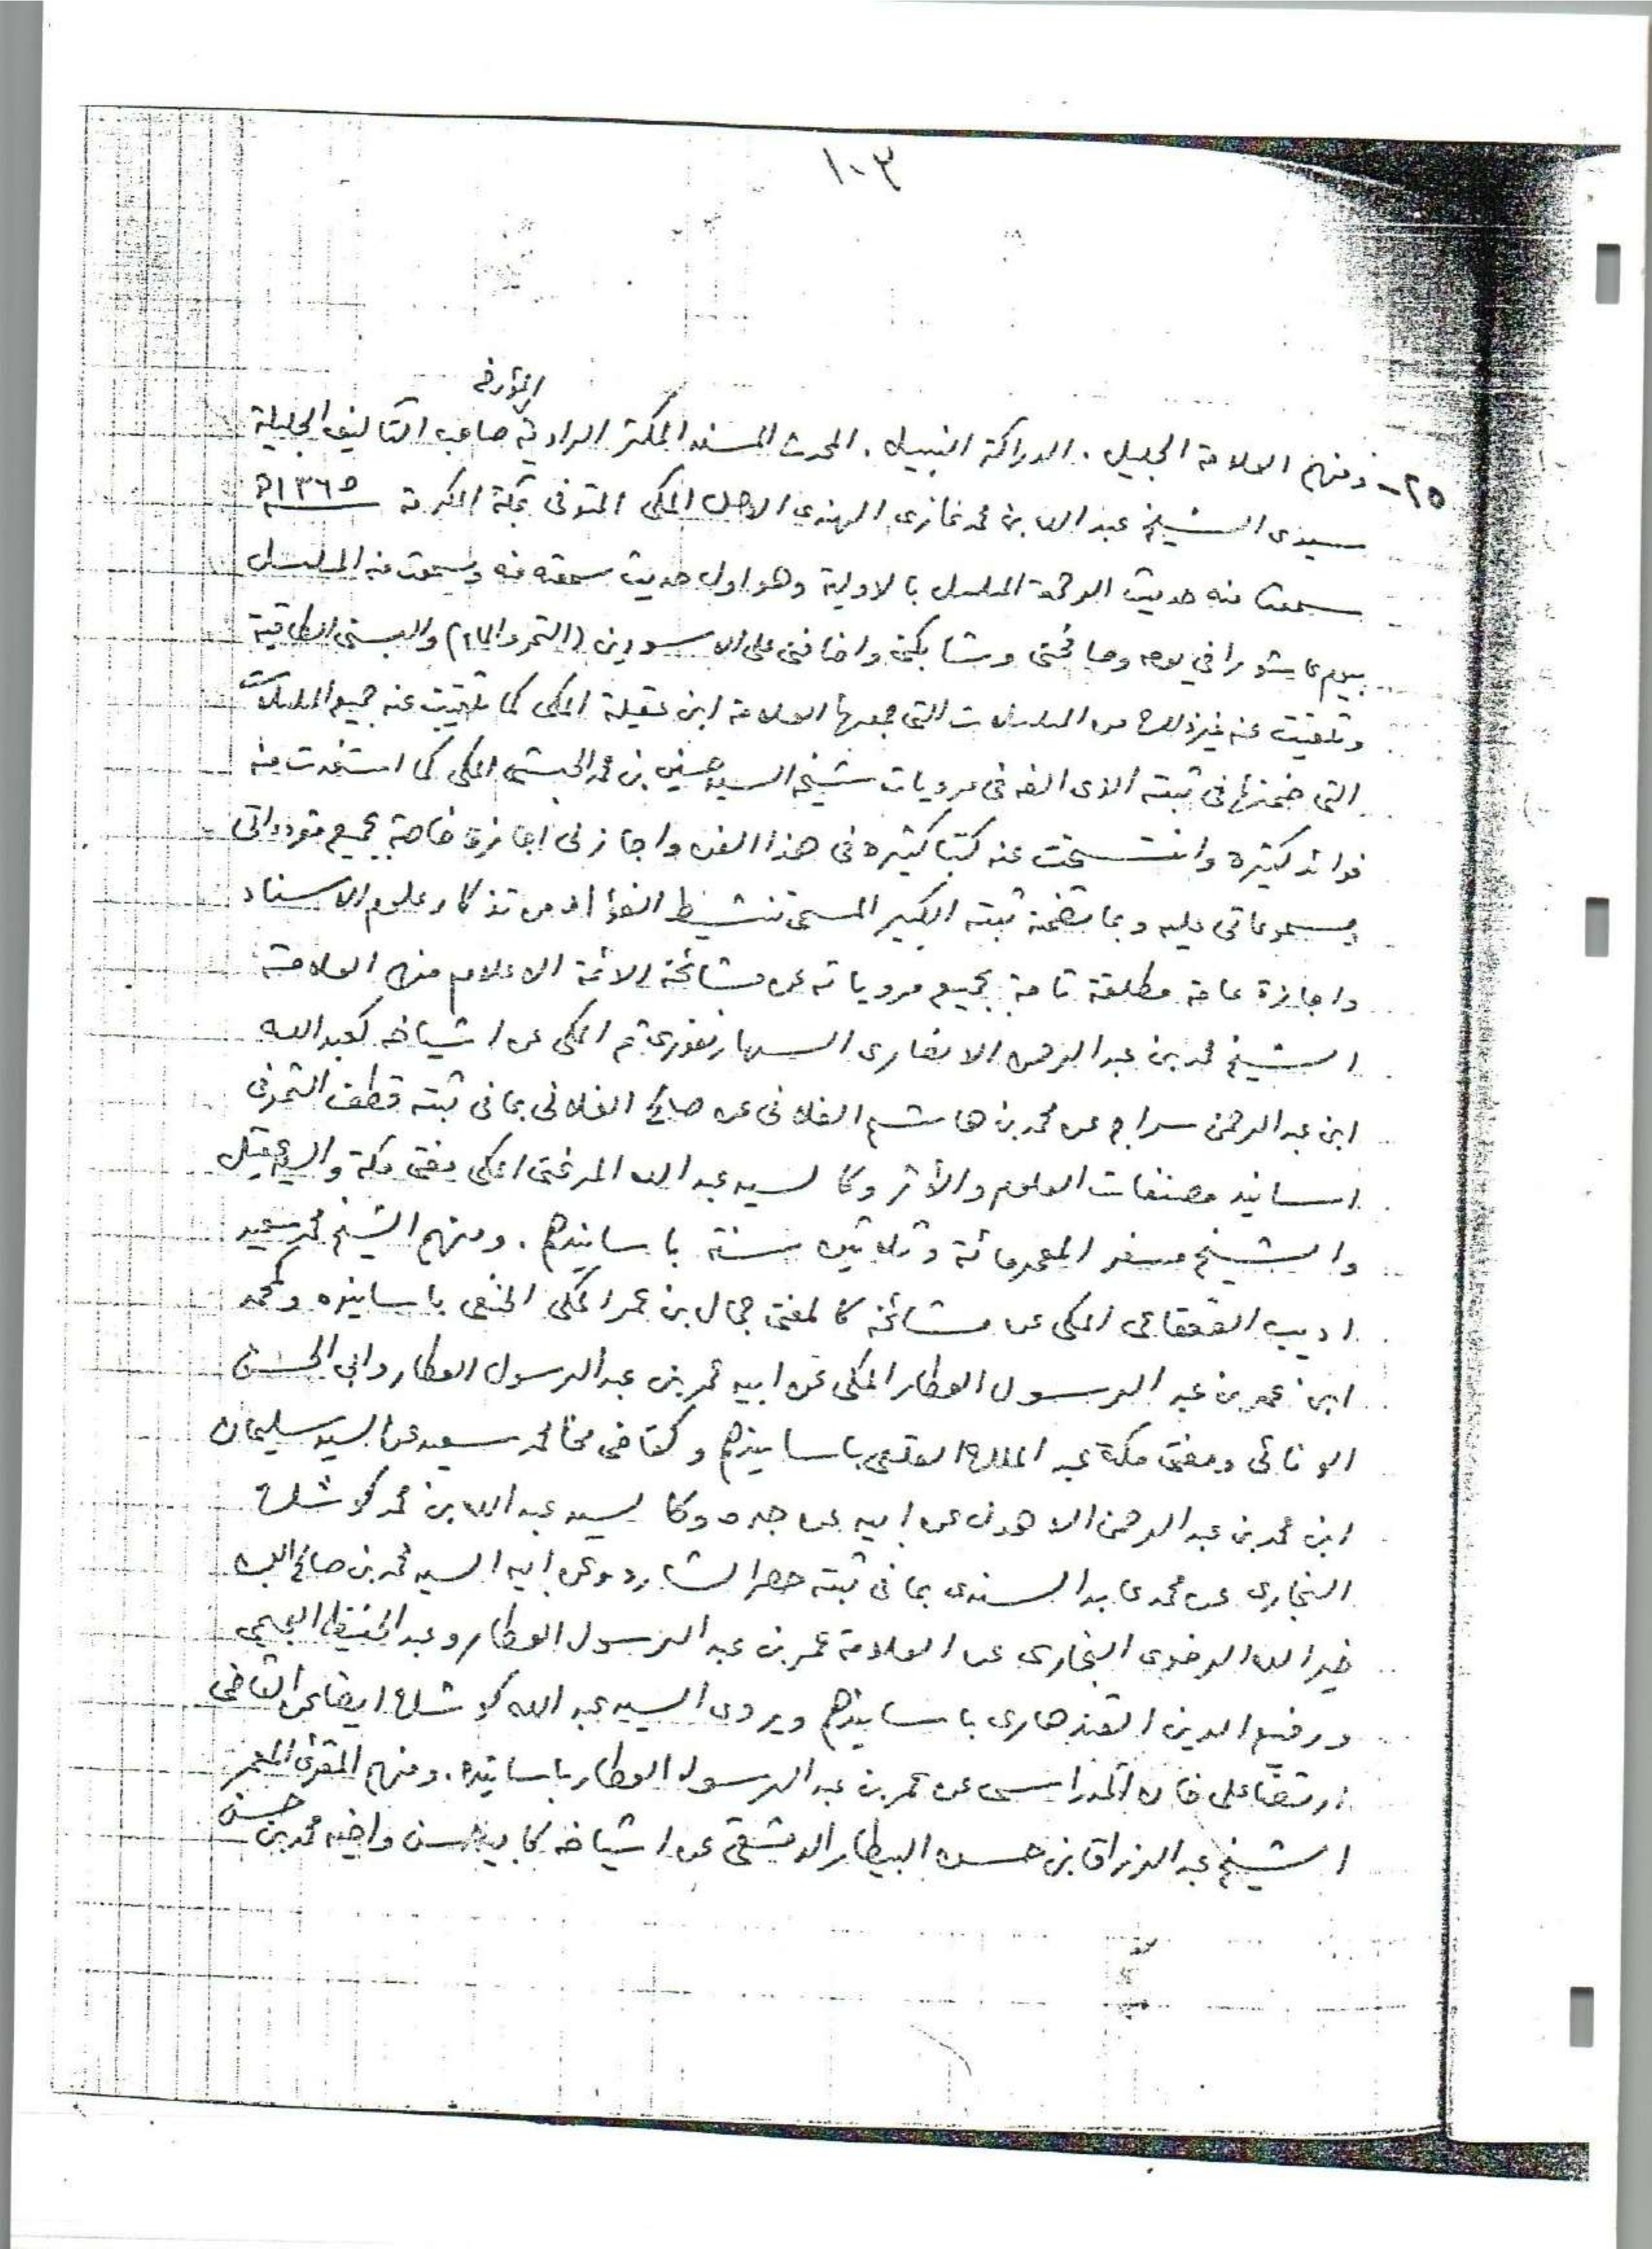 ١٠٣
المؤرخ
٢٥- ومنهم العلامة الجليل . الدراكة النبيل . المحدث المسند المكثر الراوية صاحب التآليف الجليلة
سيدى الشيخ عبد الله بن محمد غازى الهندى الاصل المكى المتوفى بمكة المكرمة سنة ١٣٦٥ه
سمعت منه حديث الرحمة المسلسل بالاولية وهو اول حديث سمعته منه وسمعت منه المسلسل
بيوم عاشورا في يومه وصافحنى وشابكنى واضافنى على الاسودين (التمر والماء) والبسنى الطاقية
وتلقيت عنه غير ذلك من المسلسلات التى جمعها العلامة ابن عقيلة المكى كما تلقيت عنه جميع المسلسلات
التى ضمنها فى ثبته الذى الفه فى مرويات شيخه السيد حسين بن محمد الحبشى المكى كما استفدت منه
فوائد كثيرة وانتسخت عنه كتبا كثيرة فى هذا الفن واجازنى اجازة خاصة بجميع مقروءاتى
ومسموعاتى عليه وبما تضمنه ثبته الكبير المسمى تنشيط الفؤاد من تذكار علوم الاسناد
واجازة عامة مطلقة تامة بجميع مروياته عن مشائخه الائمة الاعلام منهم العلامة
الشيخ محمد بن عبد الرحمن الانصارى السهارنفورى ثم المكى عن اشياخه كعبد الله
ابن عبد الرحمن سراج عن محمد بن هاشم الفلانى عن صالح الفلانى بما فى ثبته قطف الثمر فى
اسانيد مصنفات العلوم والأثر وكالسيد عبد الله المرغنى المكى مفتى مكة والسيد عقيل
والشيخ مسفر المعمر مائة وثلاثين سنة باسانيدهم . ومنهم الشيخ محمد سعيد
اديب القعقاعى المكى عن مشائخه كالمفتى جمال بن عمر المكى الحنفى باسانيده وكمحمد
ابن عمر بن عبد الرسول العطار المكى عن ابيه عمر بن عبد الرسول العطار وابى الحسن
الونائى ومفتى مكة عبد الملك القلعى باسانيدهم وكقاضى مخا محمد سعيد عن السيد سليمان
ابن محمد بن عبد الرحمن الاهدل عن ابيه عن جده وكالسيد عبد الله بن محمد كوشك
البخارى عن محمد عابد السندى بما فى ثبته حصر الشارد وعن ابيه السيد محمد بن صالح ابن
خير الله الرضوى البخارى عن العلامة عمر بن عبد الرسول العطار وعبد الحفيظ العجيمى
ورفيع الدين القندهارى باسانيدهم ويروى السيد عبد الله كوشك ايضا عن القاضى
ارتضا على خان المدراسى عن عمر بن عبد الرسول العطار باسانيده . ومنهم المقرئ المعمر
الشيخ عبد الرزاق بن حسن البيطار الدمشقى عن اشياخه كابيه حسن واخيه محمد بن حسن